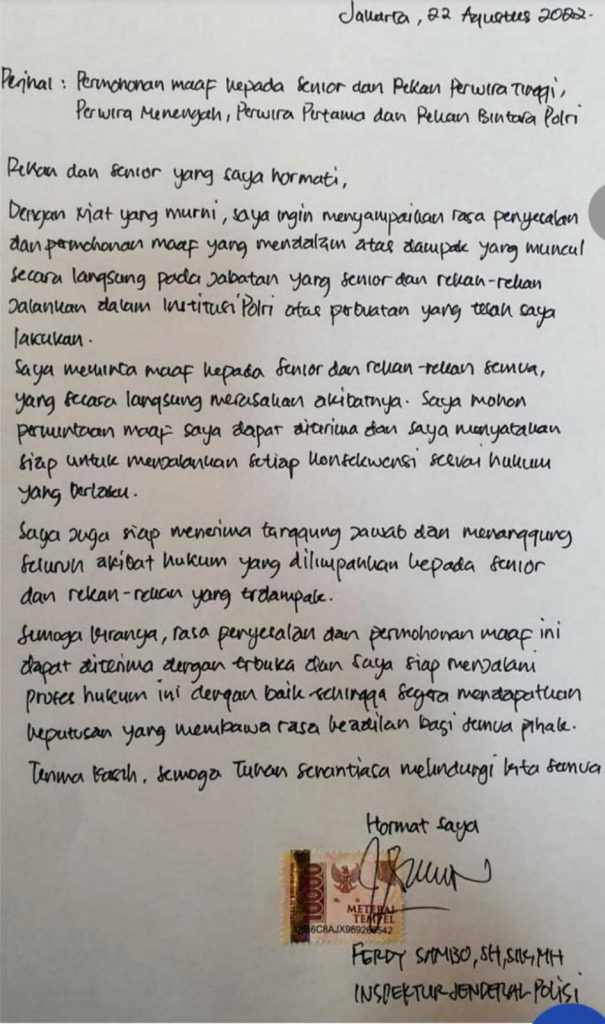 Jakarta, 22 Agustus 2022.
Perihal : Permohonan maaf kepada Senior dan Rekan Perwira Tinggi,
Perwira Menengah, Perwira Pertama dan Rekan Bintara Polri
Rekan dan Senior yang saya hormati,
Dengan niat yang murni, saya ingin menyampaikan rasa penyesalan
dan permohonan maaf yang mendalam atas dampak yang muncul
secara langsung pada jabatan yang senior dan rekan-rekan
jalankan dalam Institusi Polri atas perbuatan yang telah saya
lakukan.
Saya meminta maaf kepada Senior dan rekan-rekan semua,
yang secara langsung merasakan akibatnya. Saya mohon
permintaan maaf saya dapat diterima dan saya menyatakan
siap untuk menjalankan setiap konsekwensi sesuai hukum
yang berlaku.
Saya juga siap menerima tanggung jawab dan menanggung
seluruh akibat hukum yang dilimpahkan kepada senior
dan rekan-rekan yang terdampak.
Semoga kiranya, rasa penyesalan dan permohonan maaf ini
dapat diterima dengan terbuka dan saya siap menjalani
proses hukum ini dengan baik sehingga segera mendapatkan
keputusan yang membawa rasa keadilan bagi semua pihak.
Terima kasih, semoga Tuhan senantiasa melindungi kita semua
Hormat saya
10000
METERAI
TEMPEL
FERDY SAMBO, SH, SIK, MH
INSPEKTUR JENDERAL POLISI